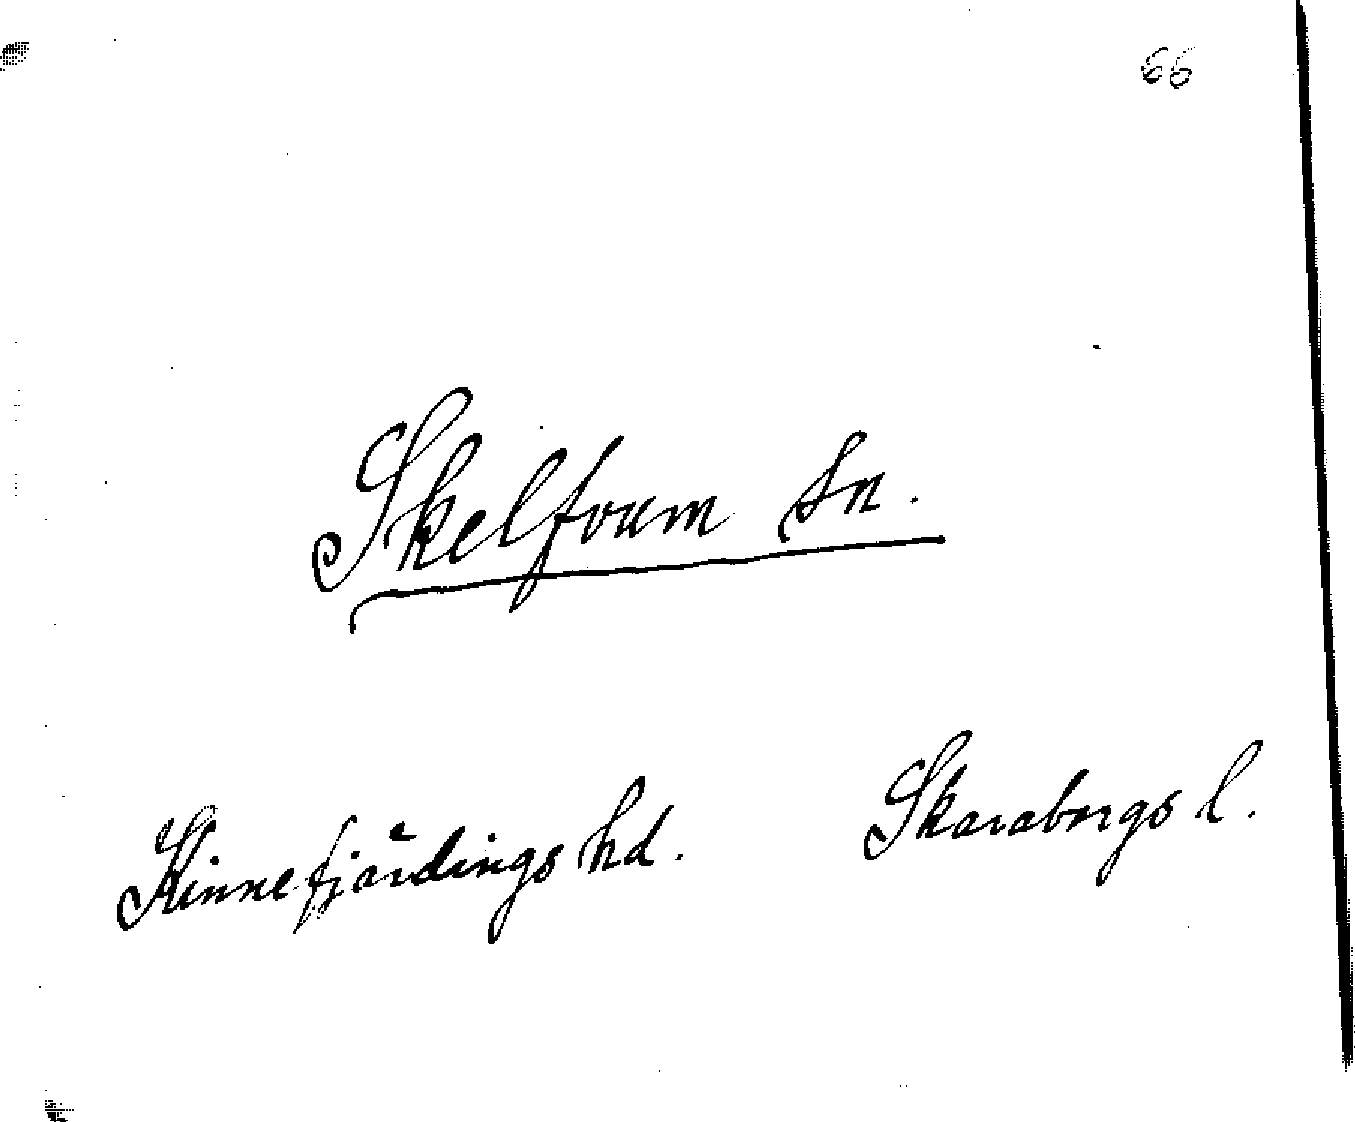 66
Skelfvum Sn.
Kinnefjärdings hd.
Skaraborgs l.